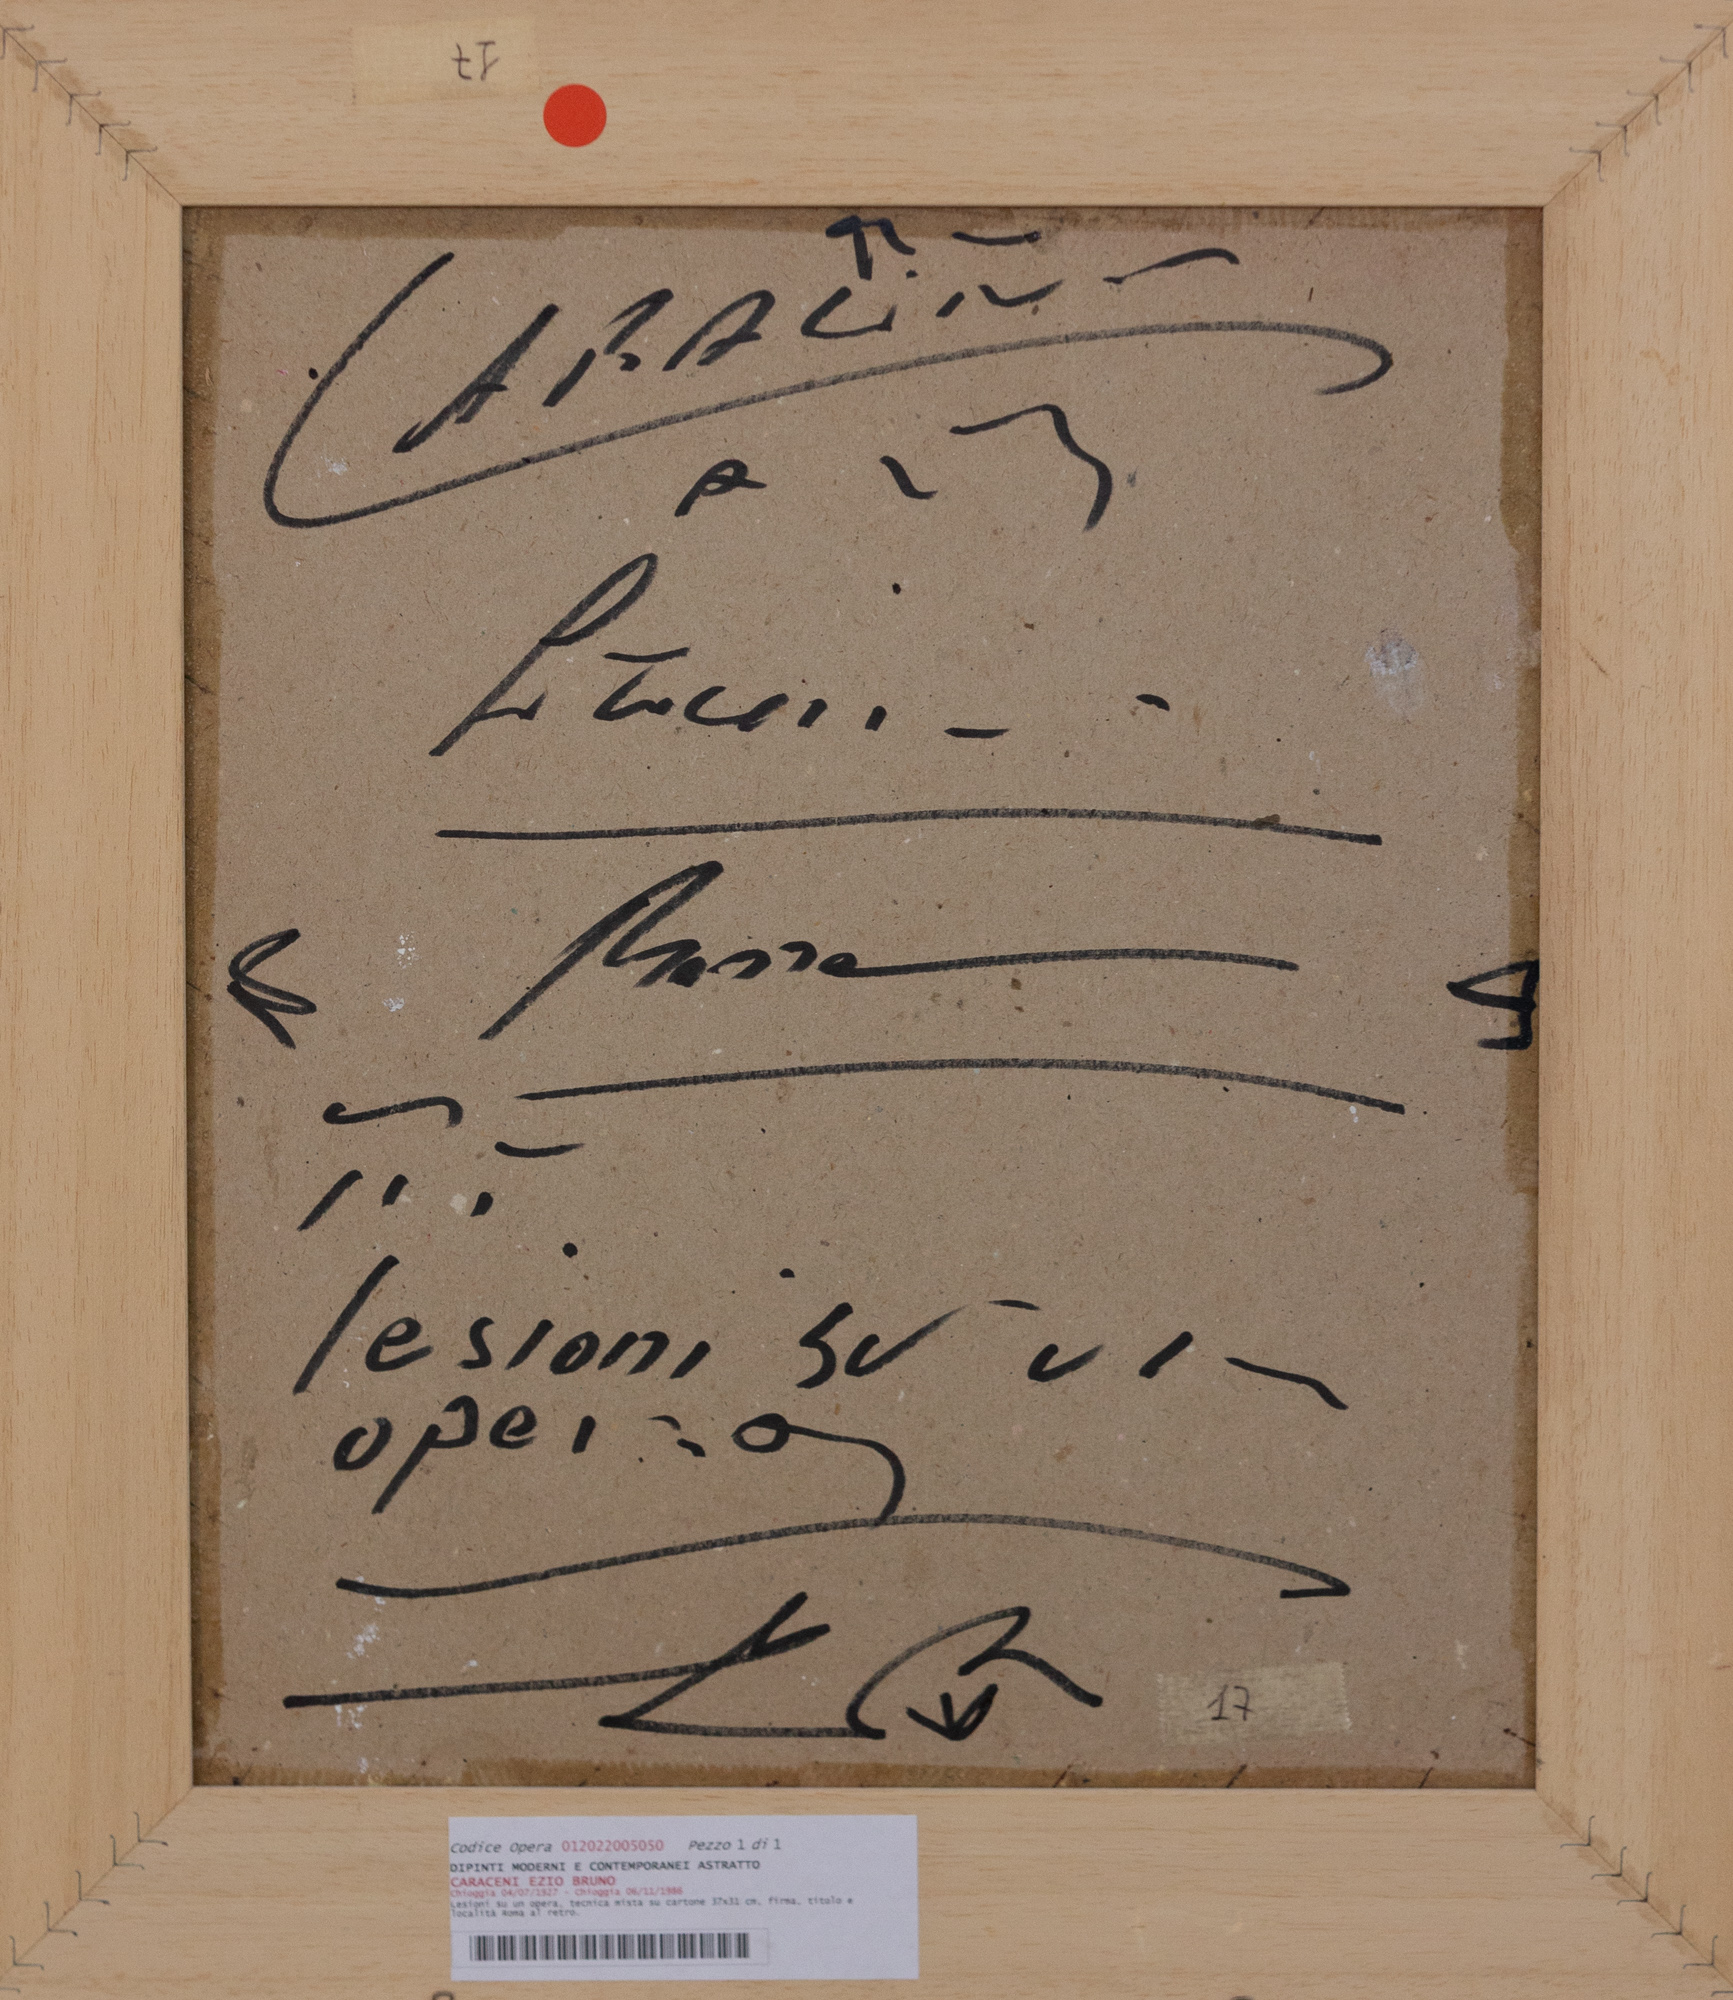 17
CARACENI
Roma
lesioni su un
opera
17
Codice Opera 012022005050 Pezzo 1 di 1
DIPINTI MODERNI E CONTEMPORANEI ASTRATTO
CARACENI EZIO BRUNO
Chioggia 04/07/1927 - Chioggia 06/11/1986
Lesioni su un opera, tecnica mista su cartone 37x31 cm, firma, titolo e
località Roma al retro.